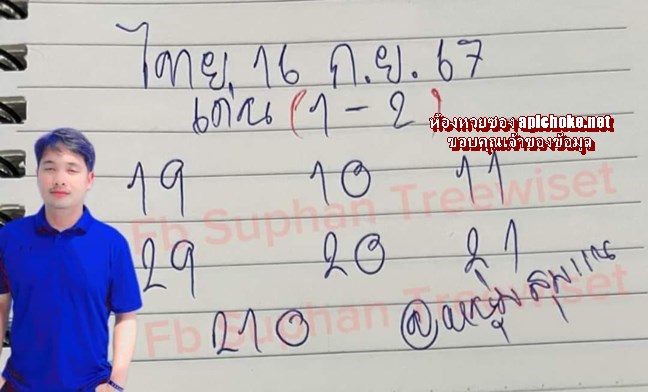 ไทย 16 ก.ย. 67
เด่น (1 - 2)
ห้องหวยซอง apichoke.net
ขอบคุณเจ้าของข้อมูล
19 10 11
Fb Suphan Treewiset
29 20 21
210 @หนุ่มสุพรรณ
Fb Suphan Treewiset